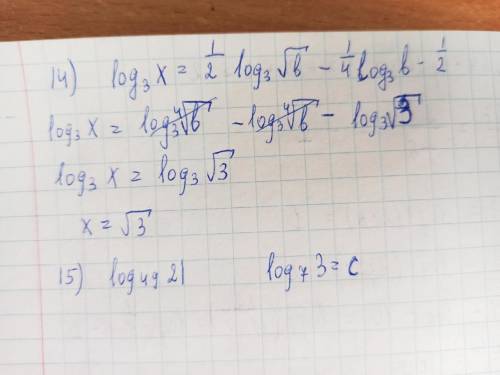 14) log₃ x = 1/2 log₃ √b - 1/4 log₃ b - 1/2
log₃ x = log₃ ⁴√b - log₃ ⁴√b - log₃ √3
log₃ x = log₃ √3
x = √3
15) log₄₉ 21 log₇ 3 = c